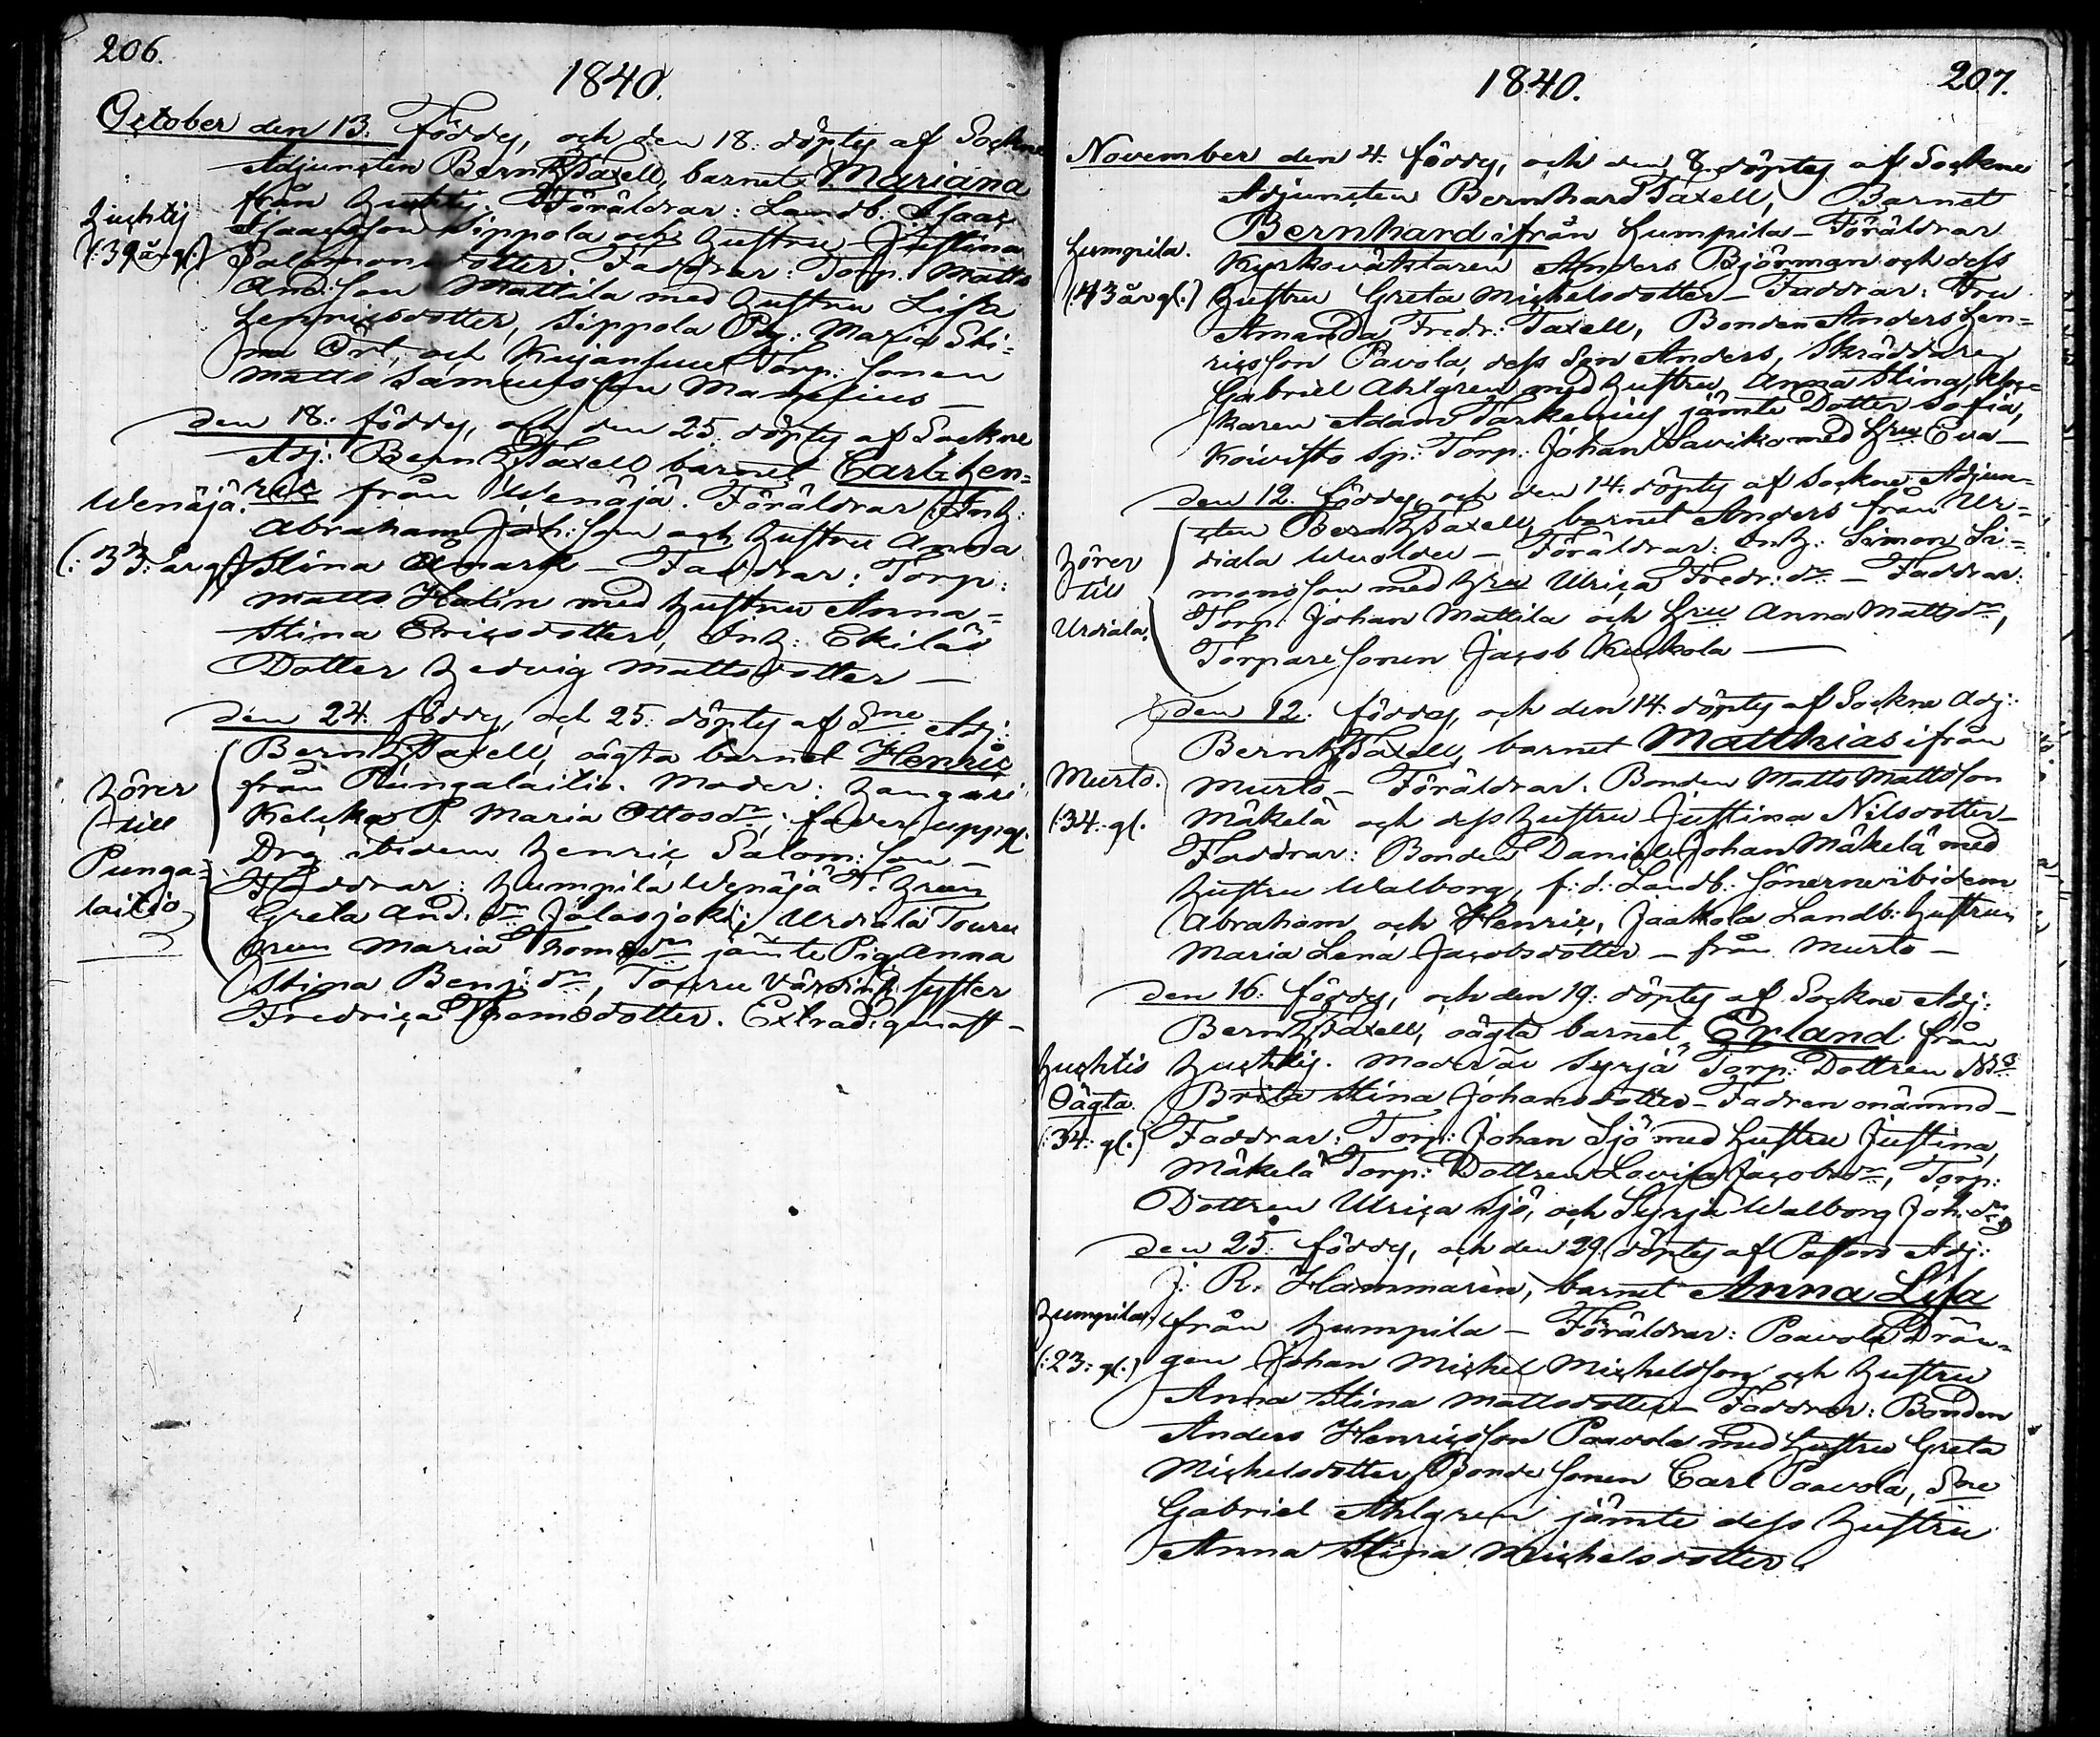 206.
1840.
October den 13. föddes, och den 18. döptes af Sockne
Adjuncten Bernh. Taxell, barnet Mariana
från Huhtis. Föräldrar: Landb. Isaac
Huhtis
Isaacsson Sippola och hustru Justina
(:39 år gl:)
Salomonsdotter. Faddrar: Torp. Matts
And:son Mattila med hustru Lisa
Henricsdotter, Sippola Pig: Maria Sti=
na Ort, och Torp: sonen
Matts Samuelsson
den 18: föddes, och den 25. döptes af Sockne
Adj: Bernh. Taxell barnet Carl Hen=
Wenäjä.
ric från Wenäjä. Föräldrar: Inh:
Abraham Joh:son och hustru Anna
(:33: år gl:)
Stina Åmark – Faddrar: Torp:
Matts Hatin med hustru Anna=
Stina Ericsdotter, Inh: Ekiläs
Dotter Hedvig Mattsdotter –
den 24. föddes, och 25. döptes af Sne Adj:
Bernh. Taxell, oägta barnet Henric
Hörer
från Pungalaitio. Moder:
till
P. Maria Ottosdr, fader uppgl.
Punga=
Drg ibidem Henric Salom:son –
laitio
Faddrar: Humpila Wenäjä
Greta And. dr Jalasjoki, Urdiala Touru
Maria Thomædr jämte Pig Anna
Stina Benj:dr, Touru Värdins syster
Fredrica Thomædotter. Extrad: genast –
1840.
207.
November den 4. föddes, och den 8. döptes af Sockne
Adjuncten Bernhard Taxell, Barnet
Bernhard ifrån Humpila – Föräldrar
Humpila.
Kyrkoväktaren Anders Björman och dess
(43 år gl:)
hustru Greta Michelsdotter – Faddrar: Fru
Amanda Fredr: Taxell, Bonden Anders Hen=
ricsson Pavola, dess Son Anders, Skräddaren
Gabriel Ahlgren med hustru Anna Stina, Kloc=
karen Adam Tarkenius jämte Dotter Sofia,
Koivisto Sjs: Torp: Johan Saviko med Hru Eva –
den 12. föddes, och den 14. döptes af Sockne Adjun=
cten Bernh Taxell, barnet Anders från Ur=
Hörer
diala – Föräldrar: Inh: Simon Si=
till
monsson med Hru Ulrica Fredr: dr – Faddrar:
Urdiala.
Torp: Johan Mattila och Hru Anna Mattsdr,
Torparesonen Jacob Kuckola –
den 12. föddes, och den 14. döptes af Sockne Adj:
Bernh. Taxell, barnet Matthias ifrån
Murto.
Murto – Föräldrar: Bonden Matts Mattsson
(34: gl.
Mäkelä och dess hustru Justina Nilsdotter –
Faddrar: Bonden Daniel Johan Mäkelä med
hustru Walborg, f:d: Landb: Sönerne ibidem
Abraham och Henric, Jaakola Landb: hustrun
Maria Lena Jacobsdotter – från Murto –
den 16: föddes, och den 19: döptes af Sockne Adj:
Bernh. Taxell, oägta barnet Erland från
Huhtis
Huhtis. Moder är Syrjä Torp: Dottren
Oägta.
Brita Stina Johansdotter – Fadren onämnd –
(:34: gl:)
Faddrar: Torp: Johan Sjö med hustru Justina,
Mäkelä Torp: Dottren Lovisa Jacobsdr, Torp:
Dottren Ulrica Sjö, och Syrjä Walborg Joh: dr
den 25: föddes, och den 29. döptes af Pastors Adj:
J. R. Hammarèn, barnet Anna Lisa
Humpila.
från Humpila – Föräldrar: Paavola Drän=
(:23: gl:)
gen Johan Michel Michelsson och hustru
Anna Stina Mattsdotter – Faddrar: Bonden
Anders Henricsson Paavola med hustru Greta
Michelsdotter, Bondesonen Carl Paavola, Sne
Gabriel Ahlgren jämte dess hustru
Anna Stina Michelsdotter.